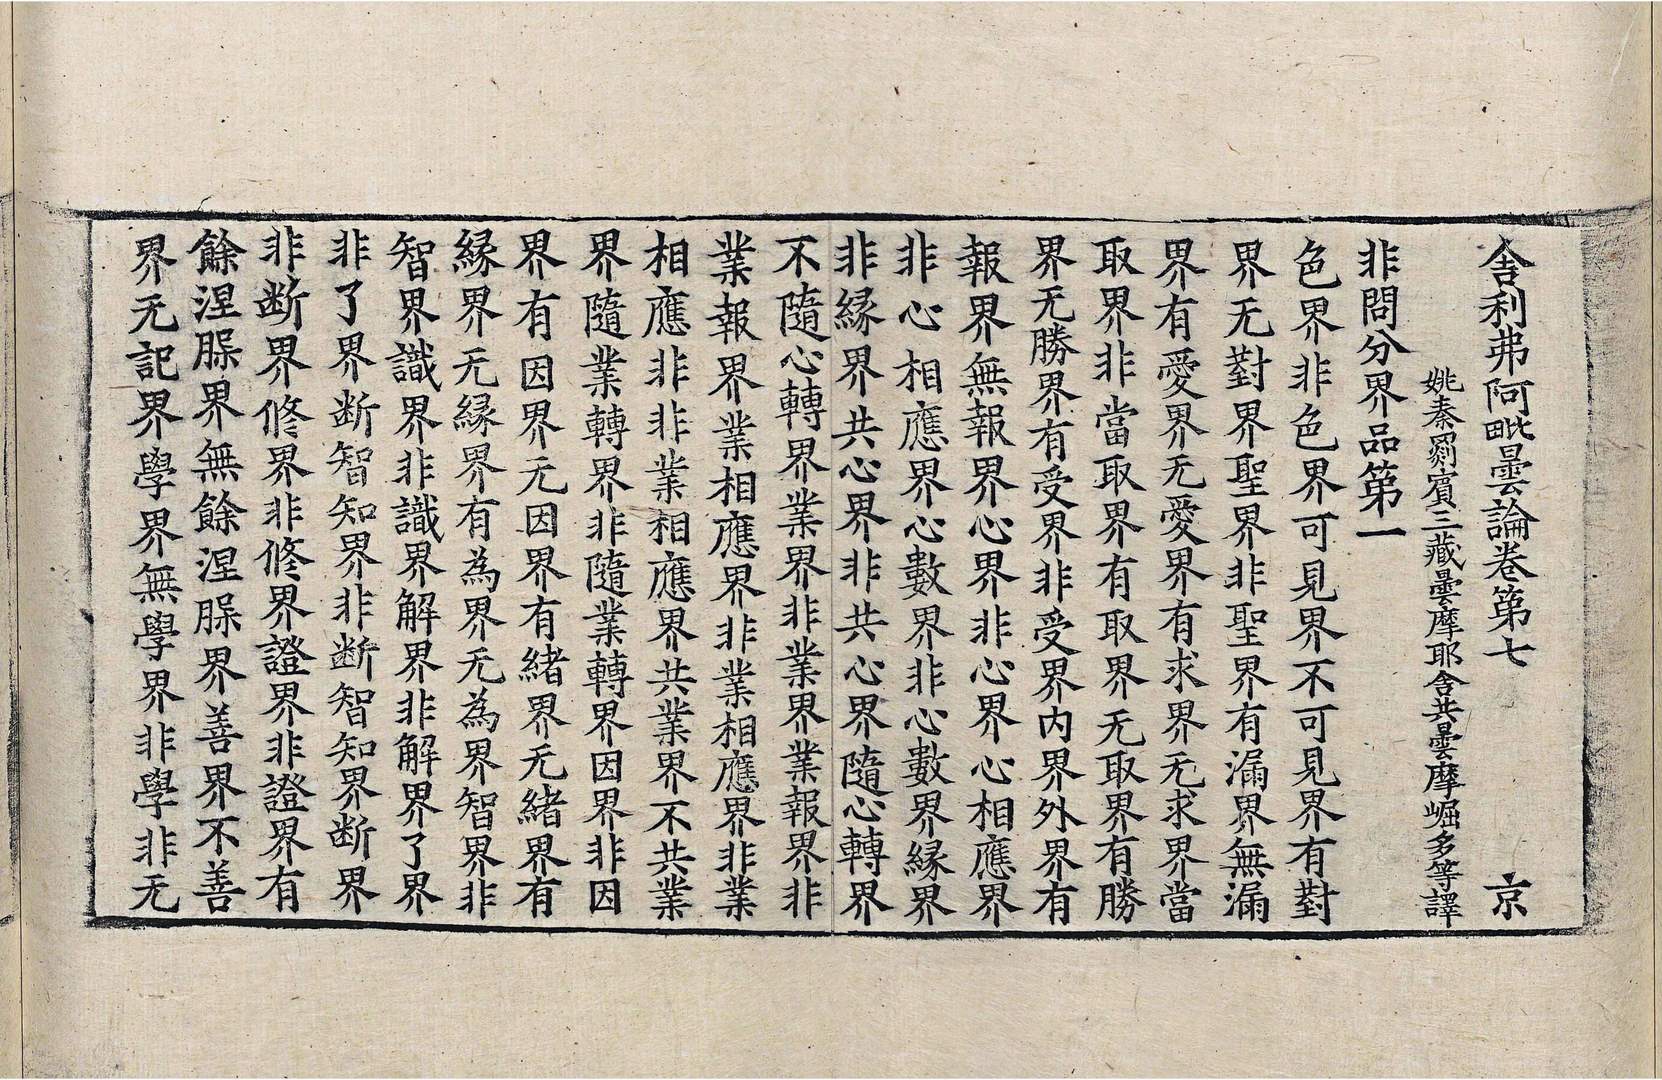 舎利弗阿毗曇論卷第七 京
姚秦罽賓三藏曇摩耶舍共曇摩崛多等譯
非問分界品第一
色界非色界可見界不可見界有對
界无對界聖界非聖界有漏界無漏
界有愛界无愛界有求界无求界當
取界非當取界有取界无取界有勝
界无勝界有受界非受界內界外界有
報界無報界心界非心界心相應界
非心相應界心數界非心數界緣界
非緣界共心界非共心界隨心轉界
不隨心轉界業界非業界業報界非
業報界業相應界非業相應界非業
相應非非業相應界共業界不共業
界隨業轉界非隨業轉界因界非因
界有因界无因界有緒界无緒界有
緣界无緣界有為界无為界智界非
智界識界非識界解界非解界了界
非了界断智知界非断智知界断界
非断界修界非修界證界非證界有
餘涅槃界無餘涅槃界善界不善
界无記界學界無學界非學非无